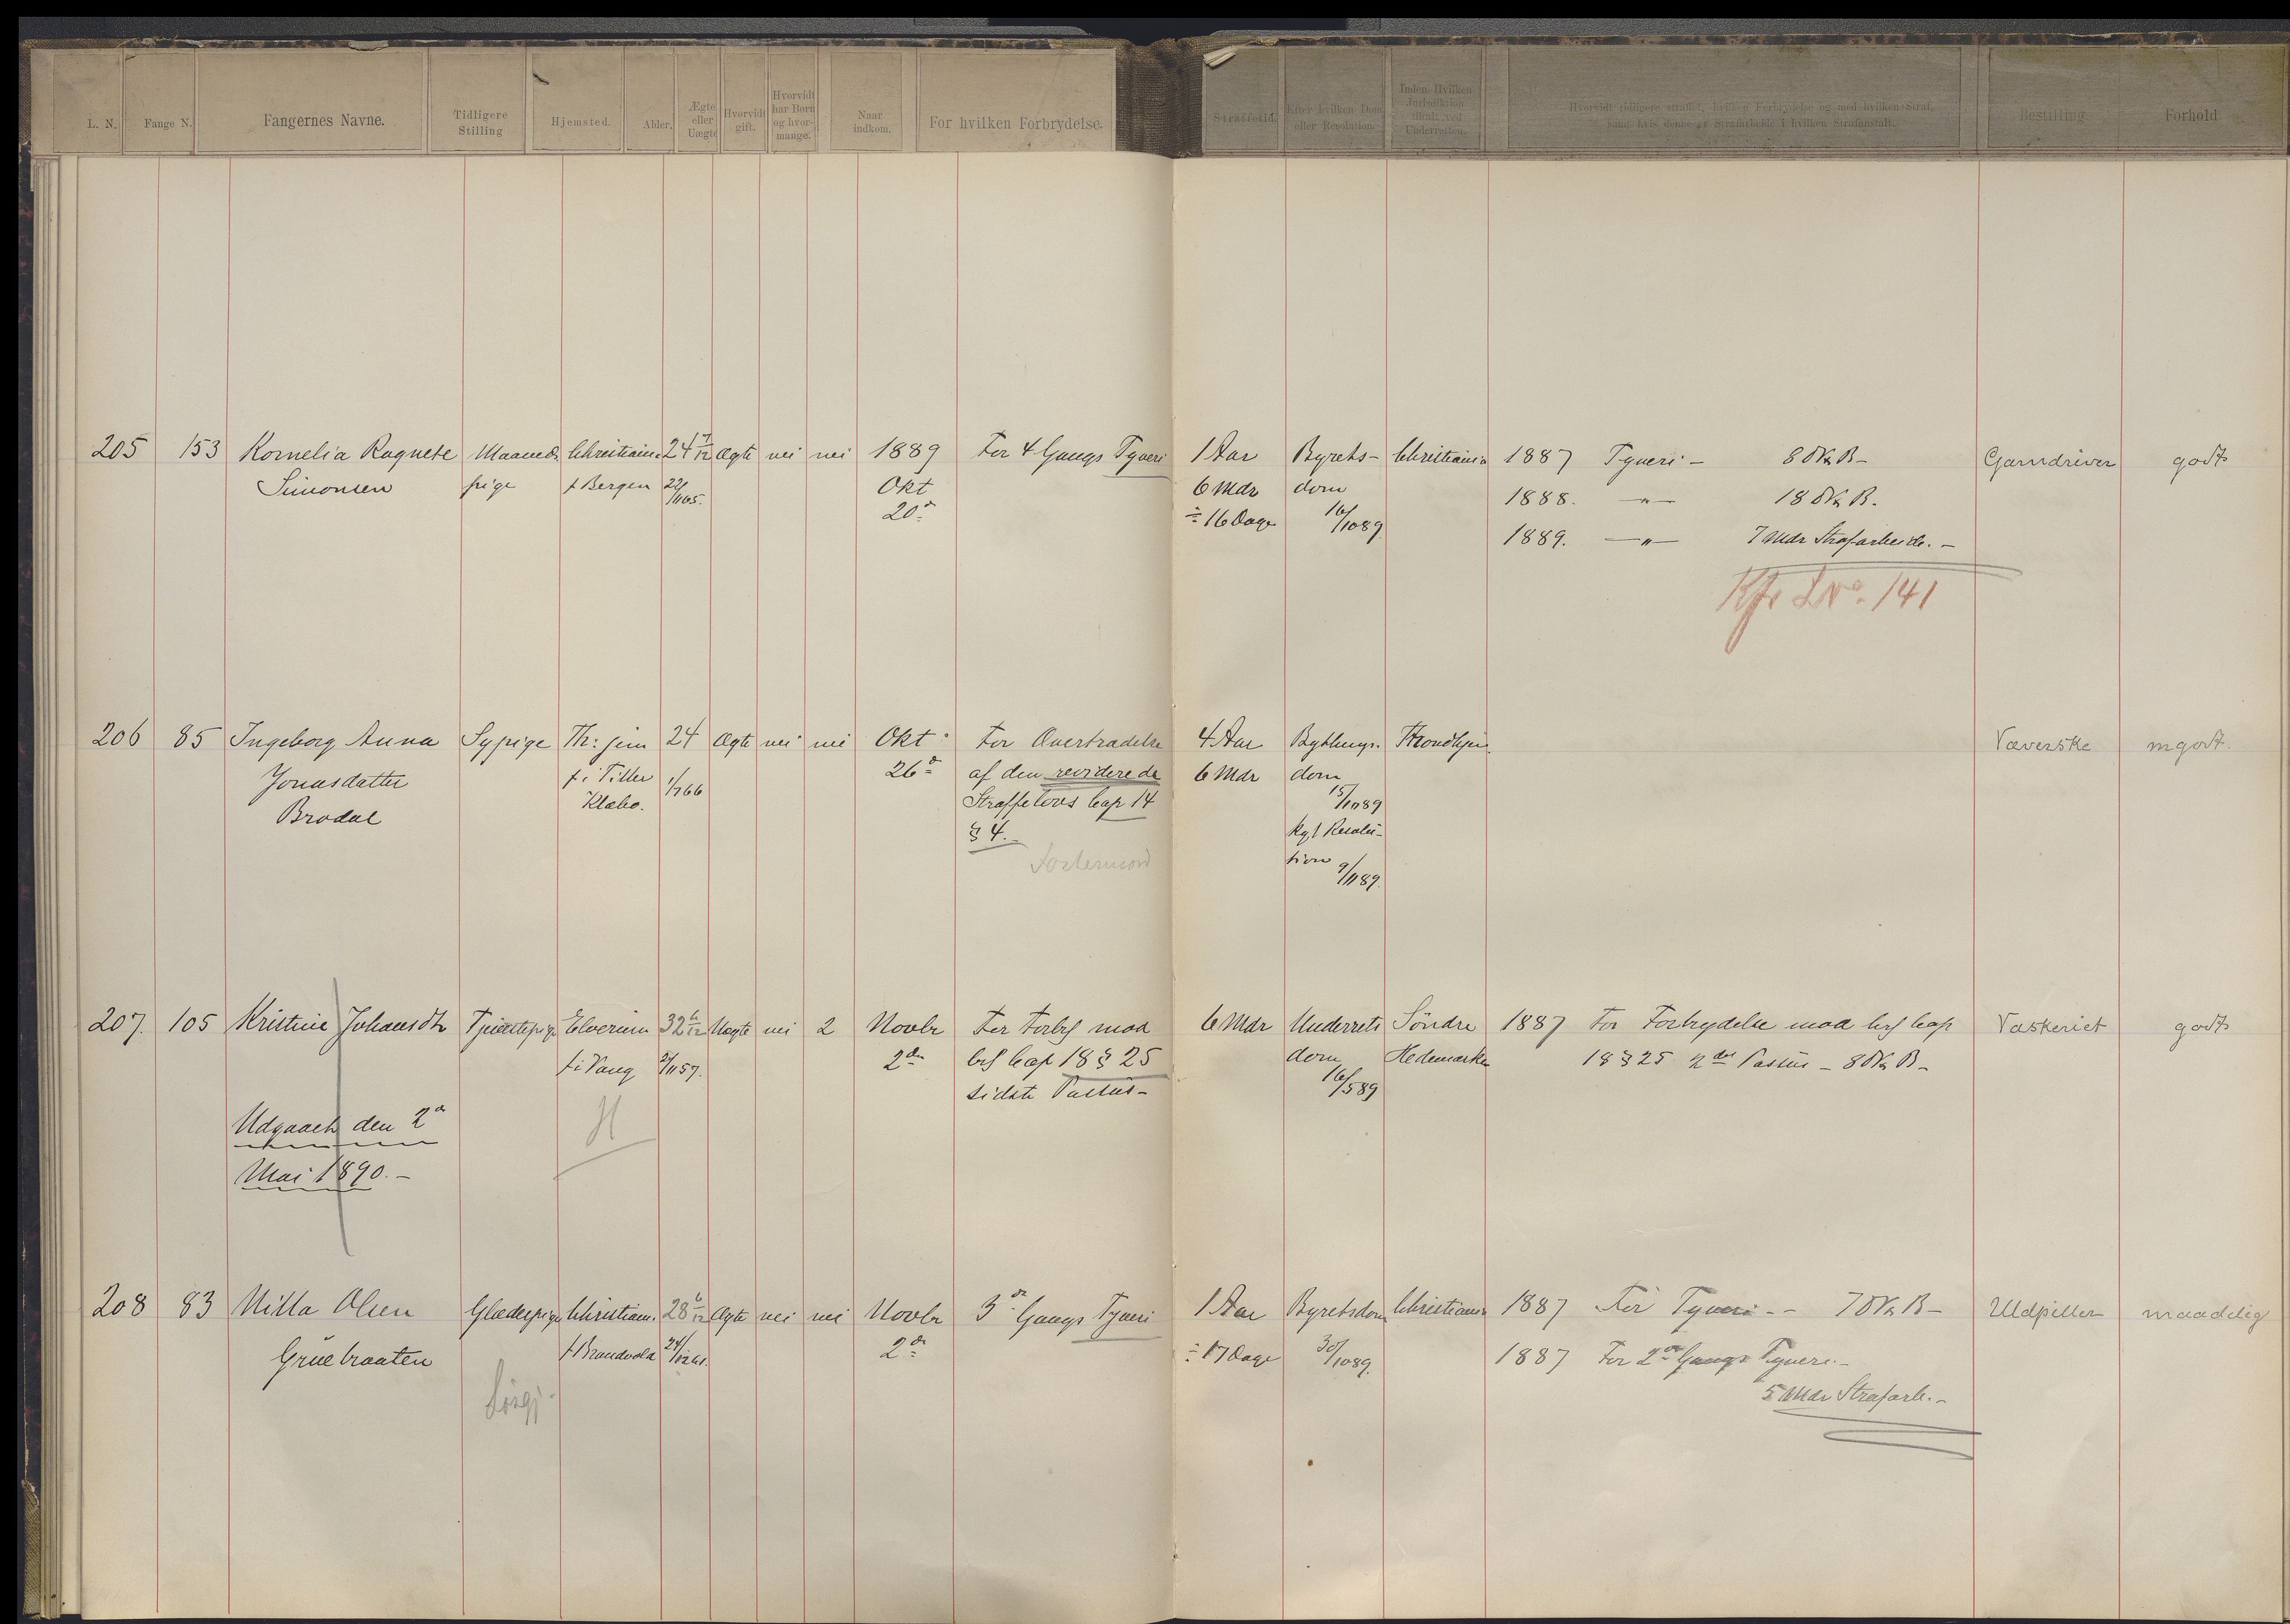 L. N. Fange N. Fangernes Navne. Tidligere Stilling Hjemsted. Alder. Ægte eller Uægte Hvorvidt gift. Hvorvidt har Børn og hvor- mange. Naar indkom. For hvilken Forbrydelse. Straffetid. Efter hvilken Dom eller Resolution. Inden Hvilken Jurisdiktion dømt ved Underretten. Hvorvidt tidligere straffet, hvilken Forbrydelse og med hvilken Straf, samt hvis denne er Strafarbeide i hvilken Strafanstalt. Bestilling Forhold
205 153 Kornelia Ragnete Maaneds Christiania 24 7/12 Ægte nei nei 1889 For 4 Gangs Tyveri 1 Aar Byrets- Christiania 1887 Tyveri - 8 D V & B - Garndriver godt
Simonsen pige f Bergen 22/1165. Okt 6 Mdr dom 1888. —„— 18 D V & B.
20de ÷ 16 Dage 16/1089. 1889. —„— 7 Mdr Strafarbeide. -
Kfr LNo. 141
206 85 Ingeborg Anna Sypige Th:jem 24 Ægte nei nei Okt. For Overtrædelse 4 Aar Bythings- Throndhjem Væverske mgodt.
Jonasdatter f i Tiller 1/766 26de af den reviderede 6 Mdr dom
Brodal Klæbo. Straffelovs Cap 14 15/1089
§ 4. kgl Resolu-
Fostermord tion 9/1189.
207. 105 Kristine Johansdtr Tjenestepige Elverum 32 6/12 Uægte nei 2 Novbr For Forbr mod 6 Mdr Underrets Søndre 1887 For Forbrydelse mod Crl Cap Vaskeriet godt
f i Vang 2/1157. 2den Crl Cap 18 § 25 dom Hedemarken 18 § 25 2det Passus - 8 D V & B -
sidste Passus - 16/589
Udgaaet den 2de H
Mai 1890. -
208 83 Milla Olsen Glædespige Christiania 28 6/12 Ægte nei nei Novbr 3de Gangs Tyveri 1 Aar Byretsdom Christiania 1887 For Tyveri - - 7 D V & B - Uldpiller maadelig
Gruebraaten f Brandvold 24/1261. 2den ÷ 17 Dage 30/1089. 1887 For 2den Gangs Tyveri. -
5 Mdr Strafarb. -